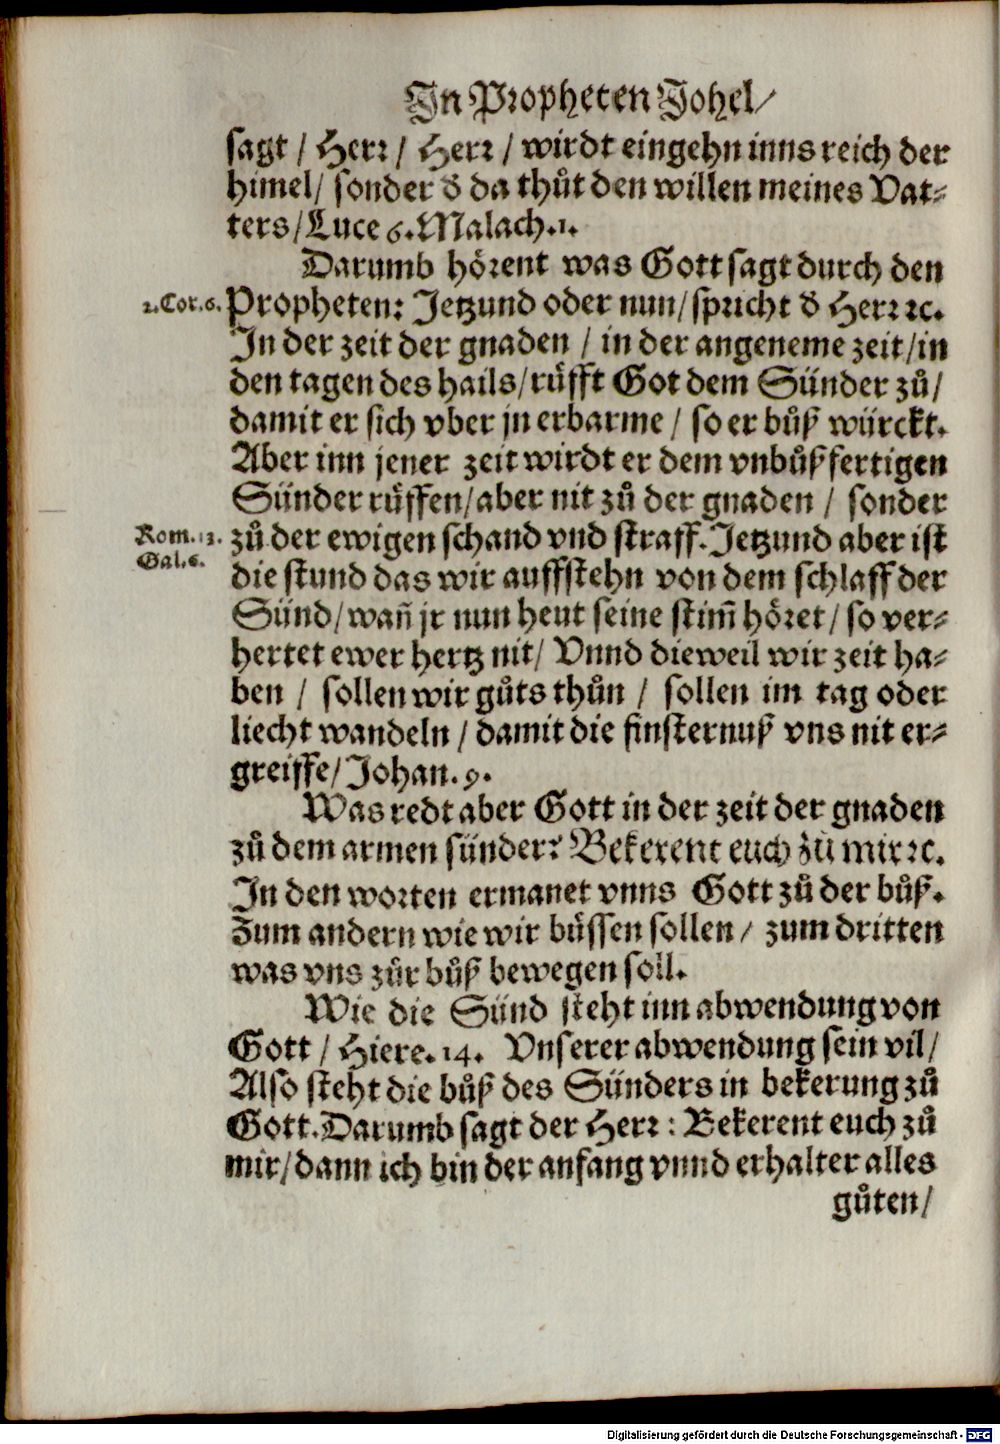 In Propheten Johel/
sagt / Herr / Herr / wirdt eingehn inns reich der
himel / sonder d̕ da thůt den willen meines Vat⸗
ters / Luce 6. Malach. 1.
Darumb hörent was Gott sagt durch den
2. Cor. 6.
Propheten: Jetzund oder nun / spricht d̕ Herr ꝛc.
In der zeit der gnaden / in der angeneme zeit / in
den tagen des hails / rüfft Got dem Sünder zů /
damit er sich vber jn erbarme / so er bůß würckt.
Aber inn jener zeit wirdt er dem vnbůßfertigen
Sünder rüffen / aber nit zů der gnaden / sonder
Rom. 13.
Gal. 6.
zů der ewigen schand vnd straff. Jetzund aber ist
die stund das wir auffstehn von dem schlaff der
Sünd / wañ jr nun heut seine stim̃ höret / so ver⸗
hertet ewer hertz nit / Vnnd dieweil wir zeit ha⸗
ben / sollen wir gůts thůn / sollen im tag oder
liecht wandeln / damit die finsternuß vns nit er⸗
greiffe / Johan. 9.
Was redt aber Gott in der zeit der gnaden
zů dem armen sünder? Bekerent euch zů mir ꝛc.
In den worten ermanet vnns Gott zů der bůß.
Zum andern wie wir büssen sollen / zum dritten
was vns zůr bůß bewegen soll.
Wie die Sünd steht inn abwendung von
Gott / Hiere. 14. Vnserer abwendung sein vil /
Also steht die bůß des Sünders in bekerung zů
Gott. Darumb sagt der Herr: Bekerent euch zů
mir / dann ich bin der anfang vnnd erhalter alles
gůten /
Digitalisierung gefördert durch die Deutsche Forschungsgemeinschaft - DFG